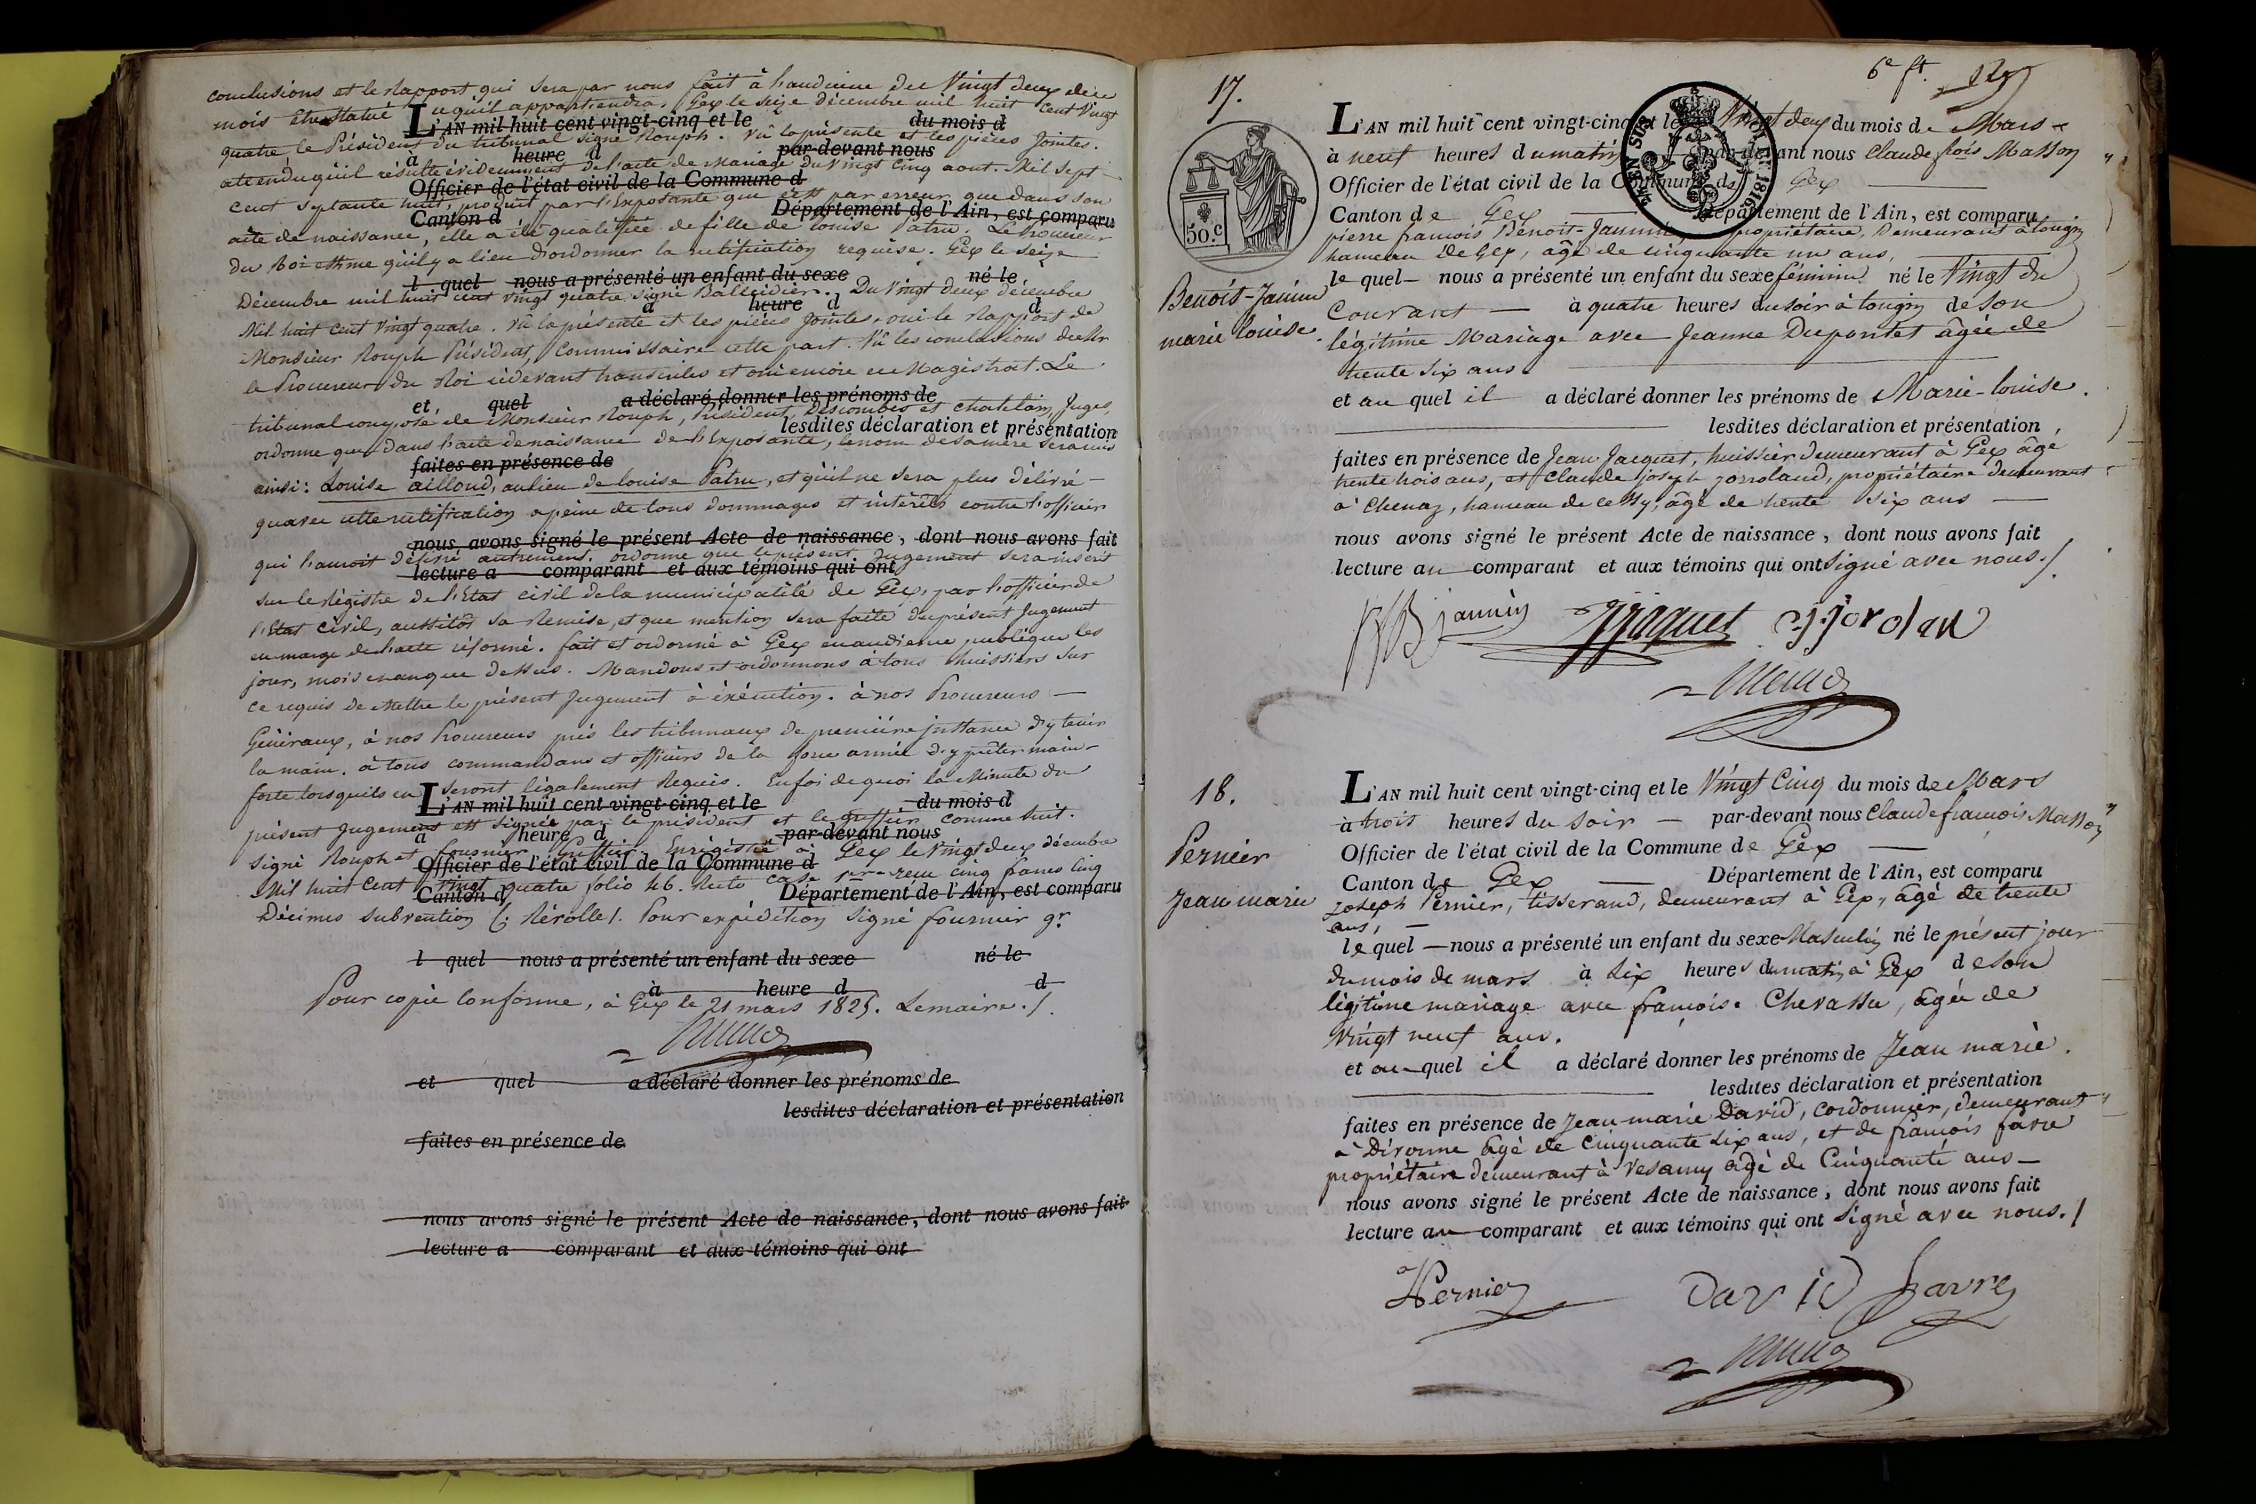 conclusions et le Rapport qui sera par nous fait à l'audience du Vingt deux de ce
mois être Statué ce qu'il appartiendra. Gex le seize décembre mil huit cent Vingt
L'AN mil huit cent vingt-cinq et le du mois d
quatre le Président du tribunal signé Rouph. Vû la présente et les pièces Jointes.
à heure d par-devant nous
attendu qu'il résulte évidemment de l'acte de Mariage du Vingt Cinq aout. Mil Sept
Officier de l'état civil de la Commune d
cent Septante huit, produit par l'Exposante que c'est par erreur que dans son
Canton d Département de l'Ain, est comparu
acte de naissance, elle a été qualifiée de fille de Louise Patru. Le Procureur
du Roi estime qu'il y a lieu d'ordonner la rectification requise. Gex le Seize
l quel nous a présenté un enfant du sexe né le
Décembre mil huit cent vingt quatre signé Balleidier. Du Vingt deux décembre
à heure d d
Mil huit cent Vingt quatre. Vû la présente et les pièces Jointes. oui le Rapport de
Monsieur Rouph Président, Commissaire cette part. Vû les conclusions de Mr
le Procureur du Roi cidevant transcrites et oui encore ce Magistrat. Le
et quel a déclaré donner les prénoms de
tribunal composé de Monsieur Rouph, Président, Descombes et Chatelain, Juges,
lesdites déclaration et présentation
ordonne que dans l'acte de naissance de l'Exposante, le nom de sa mère sera mis
faites en présence de
ainsi: Louise ailloud, au lieu de Louise Patru, et qu'il ne sera plus délivré
qu'avec cette rectification a peine de tous dommages et intérêts contre l'officier
nous avons signé le présent Acte de naissance, dont nous avons fait
qui l'auroit délivré autrement. ordonne que le présent Jugement sera inscrit
lecture a comparant et aux témoins qui ont
sur le Régistre de l'Etat civil de la municipalité de Gex, par l'officier de
l'Etat Civil, aussitôt sa Remise, et que mention sera faite du présent Jugement
en marge de l'acte réformé. fait et ordonné à Gex en audience publique les
jour, mois et an que dessus. Mandons et ordonnons à tous huissiers sur
ce requis de Mettre le présent Jugement à éxécution. à nos Procureurs
Généraux, à nos Procureurs près les tribunaux de première instance d'y tenir
la main. à tous commandans et officiers de la force armée d'y prêter main-
forte lorsqu'ils en seront légalement Requis. En foi de quoi la Minute du
L'AN mil huit cent vingt-cinq et le du mois d
présent Jugement est signée par le président et le greffier comme suit.
à heure d par-devant nous
Signé Rouph et fournier Greffier. Enrégistré à Gex le Vingt deux décembre
Officier de l'état civil de la Commune d
Mil huit Cent Vingt quatre folio 46. Recto Case 1ere reçu cinq francs Cinq
Canton d Département de l'Ain, est comparu
Décimes subvention C. Rérolle /. Pour expédition Signé fournier gr.
l quel nous a présenté un enfant du sexe né le
à heure d d
Pour copie Conforme, à Gex le 21 mars 1825. Lemaire. /.
et quel a déclaré donner les prénoms de
lesdites déclaration et présentation
faites en présence de
nous avons signé le présent Acte de naissance, dont nous avons fait
lecture a comparant et aux témoins qui ont
6e ft.
17.
50.c
1816
Benoit-Janin
marie Louise.
L'AN mil huit cent vingt-cinq et le Vingt deux du mois de Mars
à neuf heures du matin par-devant nous Claude fcois Masson
Officier de l'état civil de la Commune de Gex
Canton de Gex Département de l'Ain, est comparu
pierre francois Benoit-Jannin, propriétaire, Demeurant à tougin
hameau de Gex, âgé de cinquante un ans,
le quel nous a présenté un enfant du sexe féminin né le Vingt du
Courant à quatre heures du soir à tougin de son
légitime Mariage avec Jeanne Dupontet âgée de
trente six ans
et au quel il a déclaré donner les prénoms de Marie-louise.
lesdites déclaration et présentation,
faites en présence de Jean Jacquet, huissier demeurant à Gex âgé
trente trois ans, et Claude Joseph jorroland, propriétaire demeurant
à Chenaz, hameau de Cessy, âgé de trente six ans
nous avons signé le présent Acte de naissance, dont nous avons fait
lecture au comparant et aux témoins qui ont Signé avec nous. /.
jannin Jjaquet cj:jorolan
18.
Pernier
Jean marie
L'AN mil huit cent vingt-cinq et le Vingt Cinq du mois de Mars
à trois heures du soir par-devant nous Claude françois Masson
Officier de l'état civil de la Commune de Gex
Canton de Gex Département de l'Ain, est comparu
Joseph Pernier, tisserand, demeurant à Gex, âgé de trente
ans,
le quel nous a présenté un enfant du sexe Masculin né le présent jour
du mois de mars à Six heures du matin à Gex de son
légitime mariage avec françoise Chevassu, âgée de
Vingt neuf ans.
et au quel il a déclaré donner les prénoms de Jean marie.
lesdites déclaration et présentation
faites en présence de Jean-marie David, cordonnier, demeurant
à Divonne âgé de Cinquante six ans, et de françois favre
propriétaire demeurant à Vesancy âgé de Cinquante ans
nous avons signé le présent Acte de naissance, dont nous avons fait
lecture au comparant et aux témoins qui ont Signé avec nous. /
Pernier David favre